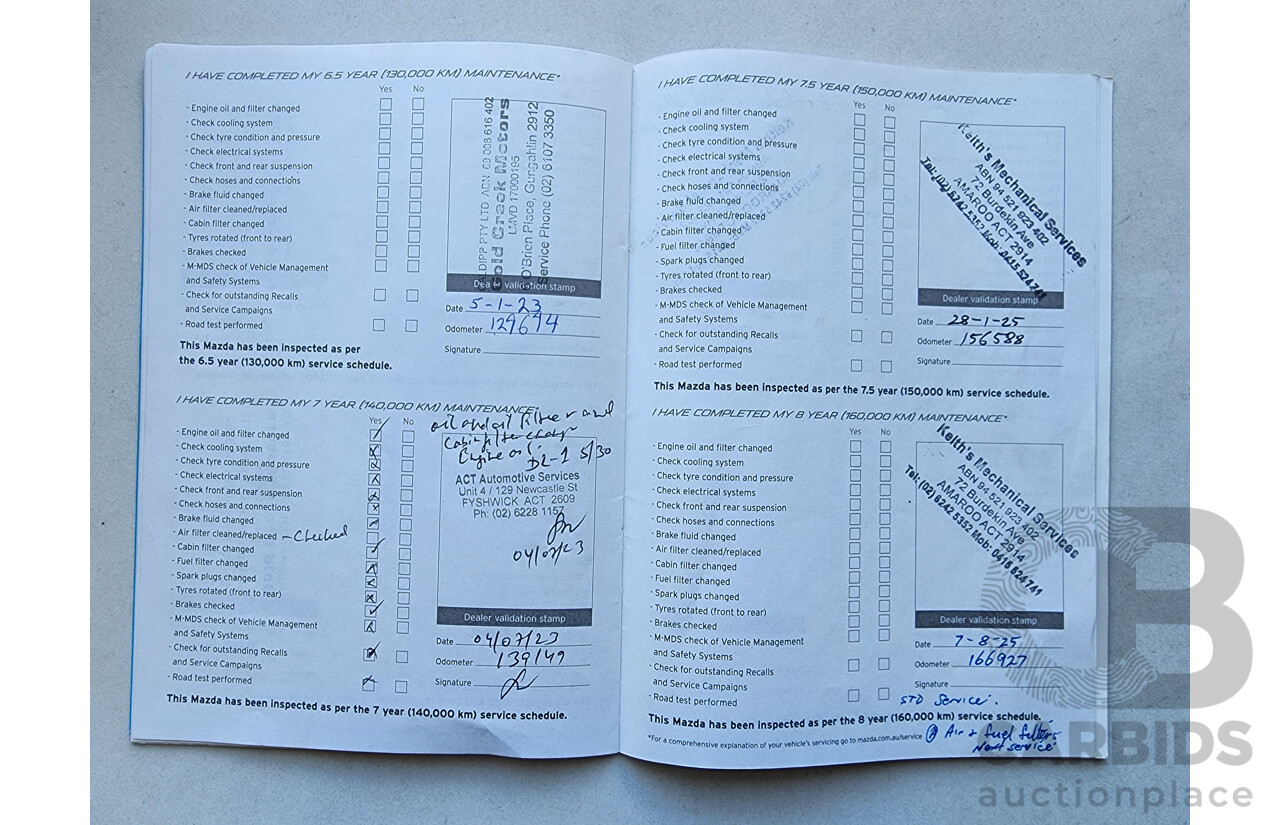 I HAVE COMPLETED MY 6.5 YEAR (130,000 KM) MAINTENANCE*
Yes No
- Engine oil and filter changed
- Check cooling system
- Check tyre condition and pressure
- Check electrical systems
- Check front and rear suspension
- Check hoses and connections
- Brake fluid changed
- Air filter cleaned/replaced
- Cabin filter changed
- Tyres rotated (front to rear)
- Brakes checked
- M-MDS check of Vehicle Management
and Safety Systems
- Check for outstanding Recalls
and Service Campaigns
- Road test performed
PTY LTD
Gold Creek Motors
LMVD 17000195
O'Brien Place, Gungahlin 2912
Service Phone (02) 6107 3350
Dealer validation stamp
Date 5-1-23
Odometer 129694
Signature
This Mazda has been inspected as per
the 6.5 year (130,000 km) service schedule.
I HAVE COMPLETED MY 7 YEAR (140,000 KM) MAINTENANCE*
Yes No
- Engine oil and filter changed
- Check cooling system
- Check tyre condition and pressure
- Check electrical systems
- Check front and rear suspension
- Check hoses and connections
- Brake fluid changed
- Air filter cleaned/replaced - Checked
- Cabin filter changed
- Fuel filter changed
- Spark plugs changed
- Tyres rotated (front to rear)
- Brakes checked
- M-MDS check of Vehicle Management
and Safety Systems
- Check for outstanding Recalls
and Service Campaigns
- Road test performed
oil and oil filter and
Cabin filter change
Engine oil
DL-1 5/30
ACT Automotive Services
Unit 4 / 129 Newcastle St
FYSHWICK ACT 2609
Ph: (02) 6228 1157
04/07/23
Dealer validation stamp
Date 04/07/23
Odometer 139149
Signature
This Mazda has been inspected as per the 7 year (140,000 km) service schedule.
I HAVE COMPLETED MY 7.5 YEAR (150,000 KM) MAINTENANCE*
Yes No
- Engine oil and filter changed
- Check cooling system
- Check tyre condition and pressure
- Check electrical systems
- Check front and rear suspension
- Check hoses and connections
- Brake fluid changed
- Air filter cleaned/replaced
- Cabin filter changed
- Fuel filter changed
- Spark plugs changed
- Tyres rotated (front to rear)
- Brakes checked
- M-MDS check of Vehicle Management
and Safety Systems
- Check for outstanding Recalls
and Service Campaigns
- Road test performed
Keith's Mechanical Services
ABN 94 521 923 402
72 Burdekin Ave
AMAROO ACT 2914
Tel: (02) 6242 5352 Mob: 0415 524 741
Dealer validation stamp
Date 28-1-25
Odometer 156588
Signature
This Mazda has been inspected as per the 7.5 year (150,000 km) service schedule.
I HAVE COMPLETED MY 8 YEAR (160,000 KM) MAINTENANCE*
Yes No
- Engine oil and filter changed
- Check cooling system
- Check tyre condition and pressure
- Check electrical systems
- Check front and rear suspension
- Check hoses and connections
- Brake fluid changed
- Air filter cleaned/replaced
- Cabin filter changed
- Fuel filter changed
- Spark plugs changed
- Tyres rotated (front to rear)
- Brakes checked
- M-MDS check of Vehicle Management
and Safety Systems
- Check for outstanding Recalls
and Service Campaigns
- Road test performed
Keith's Mechanical Services
ABN 94 521 923 402
72 Burdekin Ave
AMAROO ACT 2914
Tel: (02) 6242 5352 Mob: 0415 524 741
Dealer validation stamp
Date 7-8-25
Odometer 166927
Signature
STD Service.
This Mazda has been inspected as per the 8 year (160,000 km) service schedule.
*For a comprehensive explanation of your vehicle's servicing go to mazda.com.au/service
Air & fuel filters
Next service
CARBIDS
auctionplace